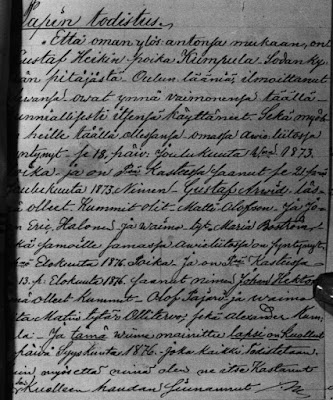 Papin todistus.
Että oman ylös-antonsa mukaan, on
Gustaf Heikin poika Kumpula Sodanky
län pitäjästä Oulun läänis, ilmoittanut
ovat ynnä vaimonensa täällä
kunniallisesti itsensä käyttäneet. Sekä myös
heille täällä ollessansa omasa avio-liitosa
syntynyt - se 18. päiv. Joulukuuta 1873.
Poika, ja on Kasteesa saanut se 21. päiv
Joulukuuta 1873 Nimen - Gustaf Arvid, läs
nä olleet Kummit Olit - Matts Olofson. Ja Jo
Eric. Halone ja waimo Maria Boström,
Sekä samoille samassa Awioliitossa on syntynyt
Elokuuta 1876. Poika ja on Kasteessa
13. p. Elokuuta 1876. saanut nimen Johan Hektor
läsnä olleet kummit - Olof ja waimo
tytär jokä Alexander Kum
pula - Ja tämä wiime mainittu lapsi on Kuollut
päivä Syyskuuta 1876 - joka kaikki todistetaan.
niin myös että minä olen ne itse Kastanut
Kuolleen haudan Siunannut